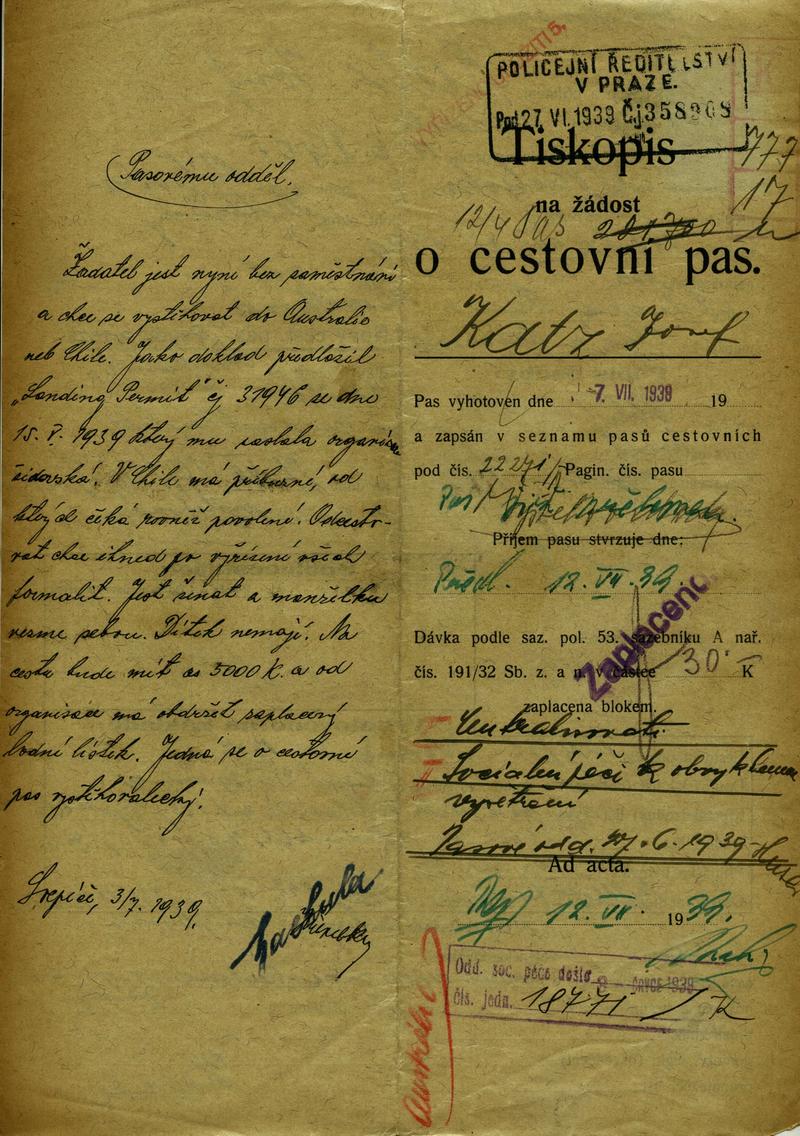 Pasovému odděl.
Žadatel jest nyní bez zaměstnání
a chce se vystěhovat do Australie
neb Chile. Jako doklad předložil
„Landing Permit" čj 31946 ze dne
15. V. 1939 který mu zaslala organisace
židovská. V Chile má příbuzné, od
kterých čeká rovněž povolení. Odcesto-
vat chce ihned po vyřízení všech
formalit. Jest ženat a manželku
vezme sebou. Dítek nemají. Na
cestu bude mít as 5000 K. a od
organisace má obdržet zaplacený
lodní lístek. Jedná se o cestovní
pas vystěhovalecký.
3/7. 1939.
POLICEJNÍ ŘEDITELSTVÍ
V PRAZE.
27. VI. 1939 Čj 358908
Tiskopis
777
17
na žádost
12/4
o cestovní pas.
Katz Josef
Pas vyhotoven dne 7. VII. 1939 19
a zapsán v seznamu pasů cestovních
pod čís. 22271 Pagin. čís. pasu
Příjem pasu stvrzuje dne:
12. VII. 39.
Dávka podle saz. pol. 53. sazebníku A nař.
čís. 191/32 Sb. z. a n. v částce 30 — K
Zaplaceno
zaplacena blokem.
Centralisovati.
Sociální péči k obvyklému
vyšetření
Pasové odd. 27. 6. 1939
Ad acta.
12. VII. 1939.
Odd. soc. péče došlo ČERVCE 1939
čís. jedn. 18771